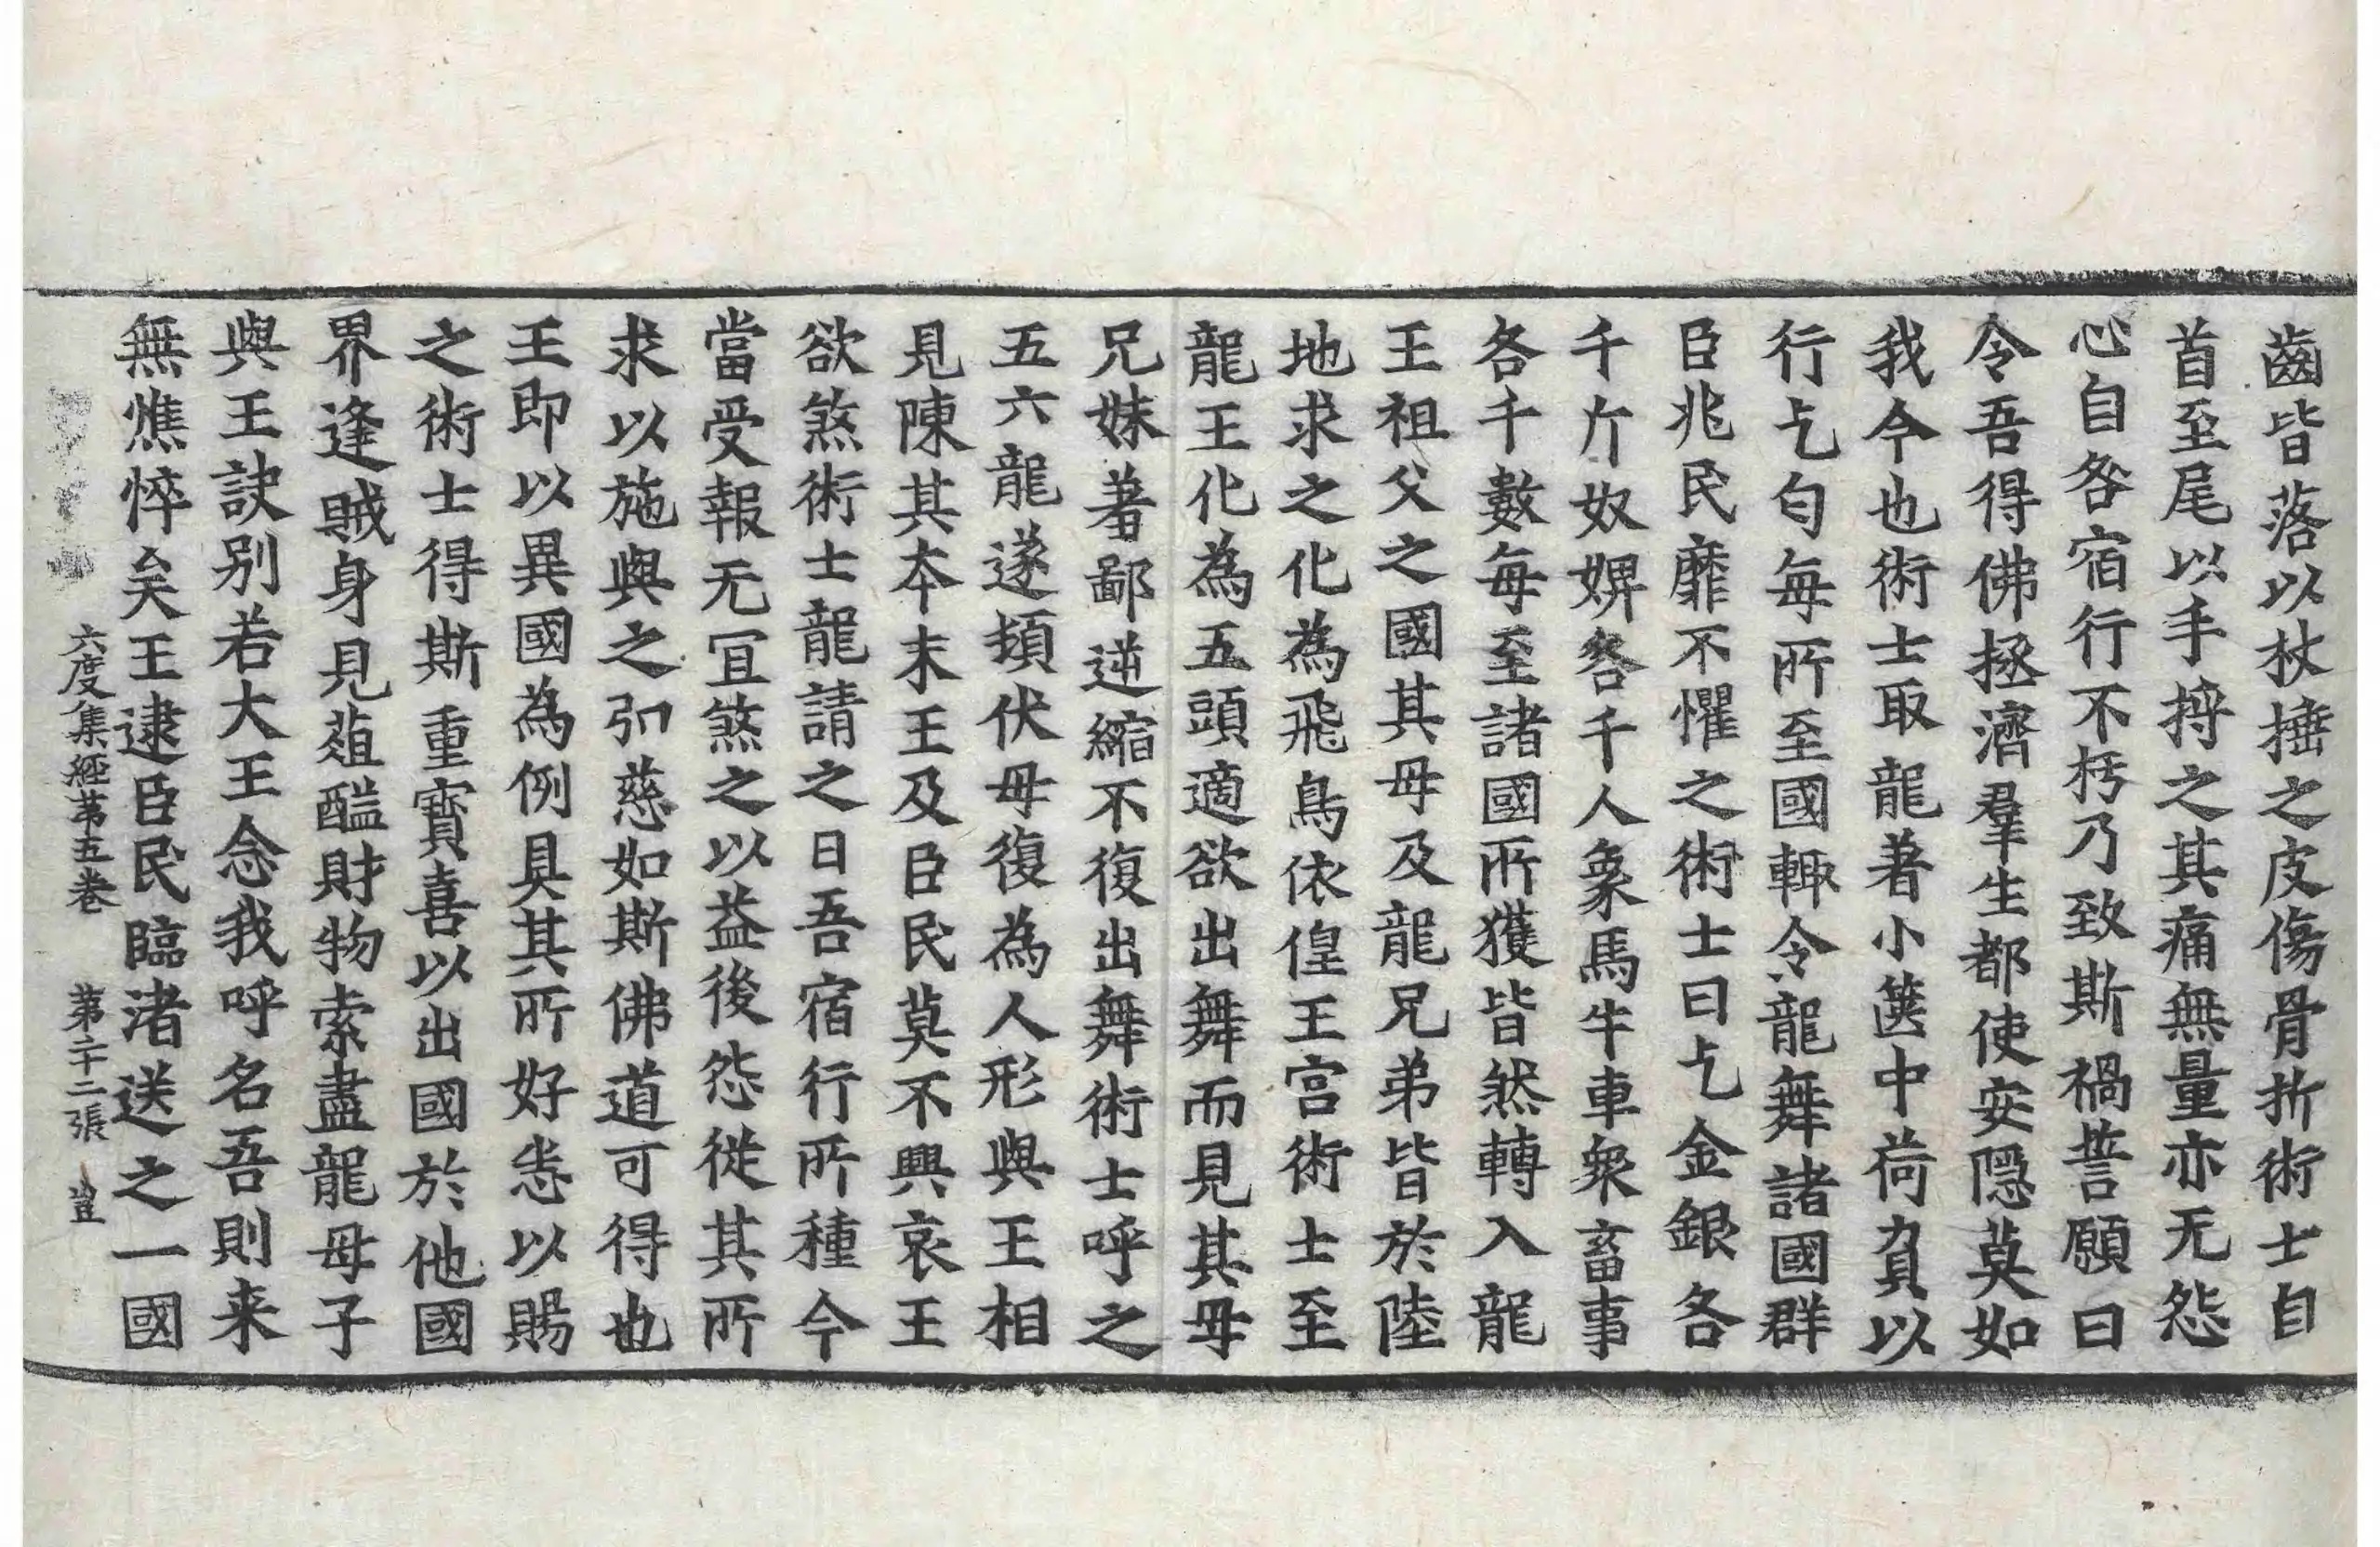 齒皆落以杖捶之皮傷骨折術士自
首至尾以手捋之其痛無量亦无怨
心自咎宿行不朽乃致斯禍誓願曰
令吾得佛拯濟羣生都使安隠莫如
我今也術士取龍著小篋中荷負以
行乞匂每所至國輙令龍舞諸國群
臣兆民靡不懼之術士曰乞金銀各
千斤奴婢各千人象馬牛車衆畜事
各千數每至諸國所獲皆然轉入龍
王祖父之國其母及龍兄弟皆於陸
地求之化為飛鳥依偟王宫術士至
龍王化為五頭適欲出舞而見其母
兄妹著鄙逆縮不復出舞術士呼之
五六龍遂頓伏母復為人形與王相
見陳其夲末王及臣民莫不興哀王
欲煞術士龍請之曰吾宿行所種今
當受報无冝煞之以益後怨從其所
求以施與之弘慈如斯佛道可得也
王即以異國為例具其所好悉以賜
之術士得斯重寳喜以出國於他國
界逢賊身見葅醢財物索盡龍母子
與王訣别若大王念我呼名吾則来
無憔悴矣王逮臣民臨渚送之一國
六度集經苐五巻 第二十二張 豈